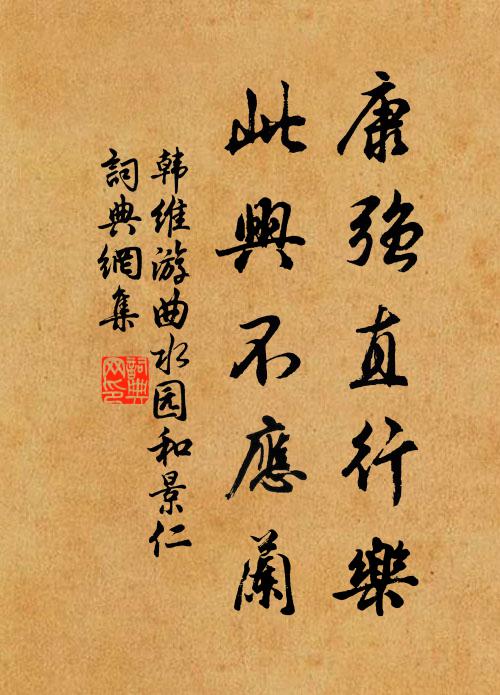 康強直行樂
此興不應蘭
韩維游曲水园和景仁
詞典網集
詞典網印